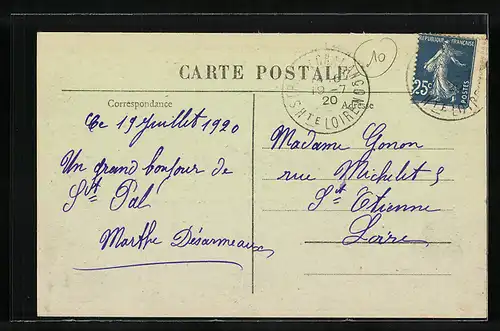 10
CARTE POSTALE
REPUBLIQUE FRANÇAISE
25c
POSTES
19 -7
20
Hte LOIRE
Correspondance
Adresse
Ce 19 Juillet 1920
Un grand bonjour de
St Pal
Marthe Désarmeaux
Madame Gonon
rue Michelet 5
St Etienne
Loire